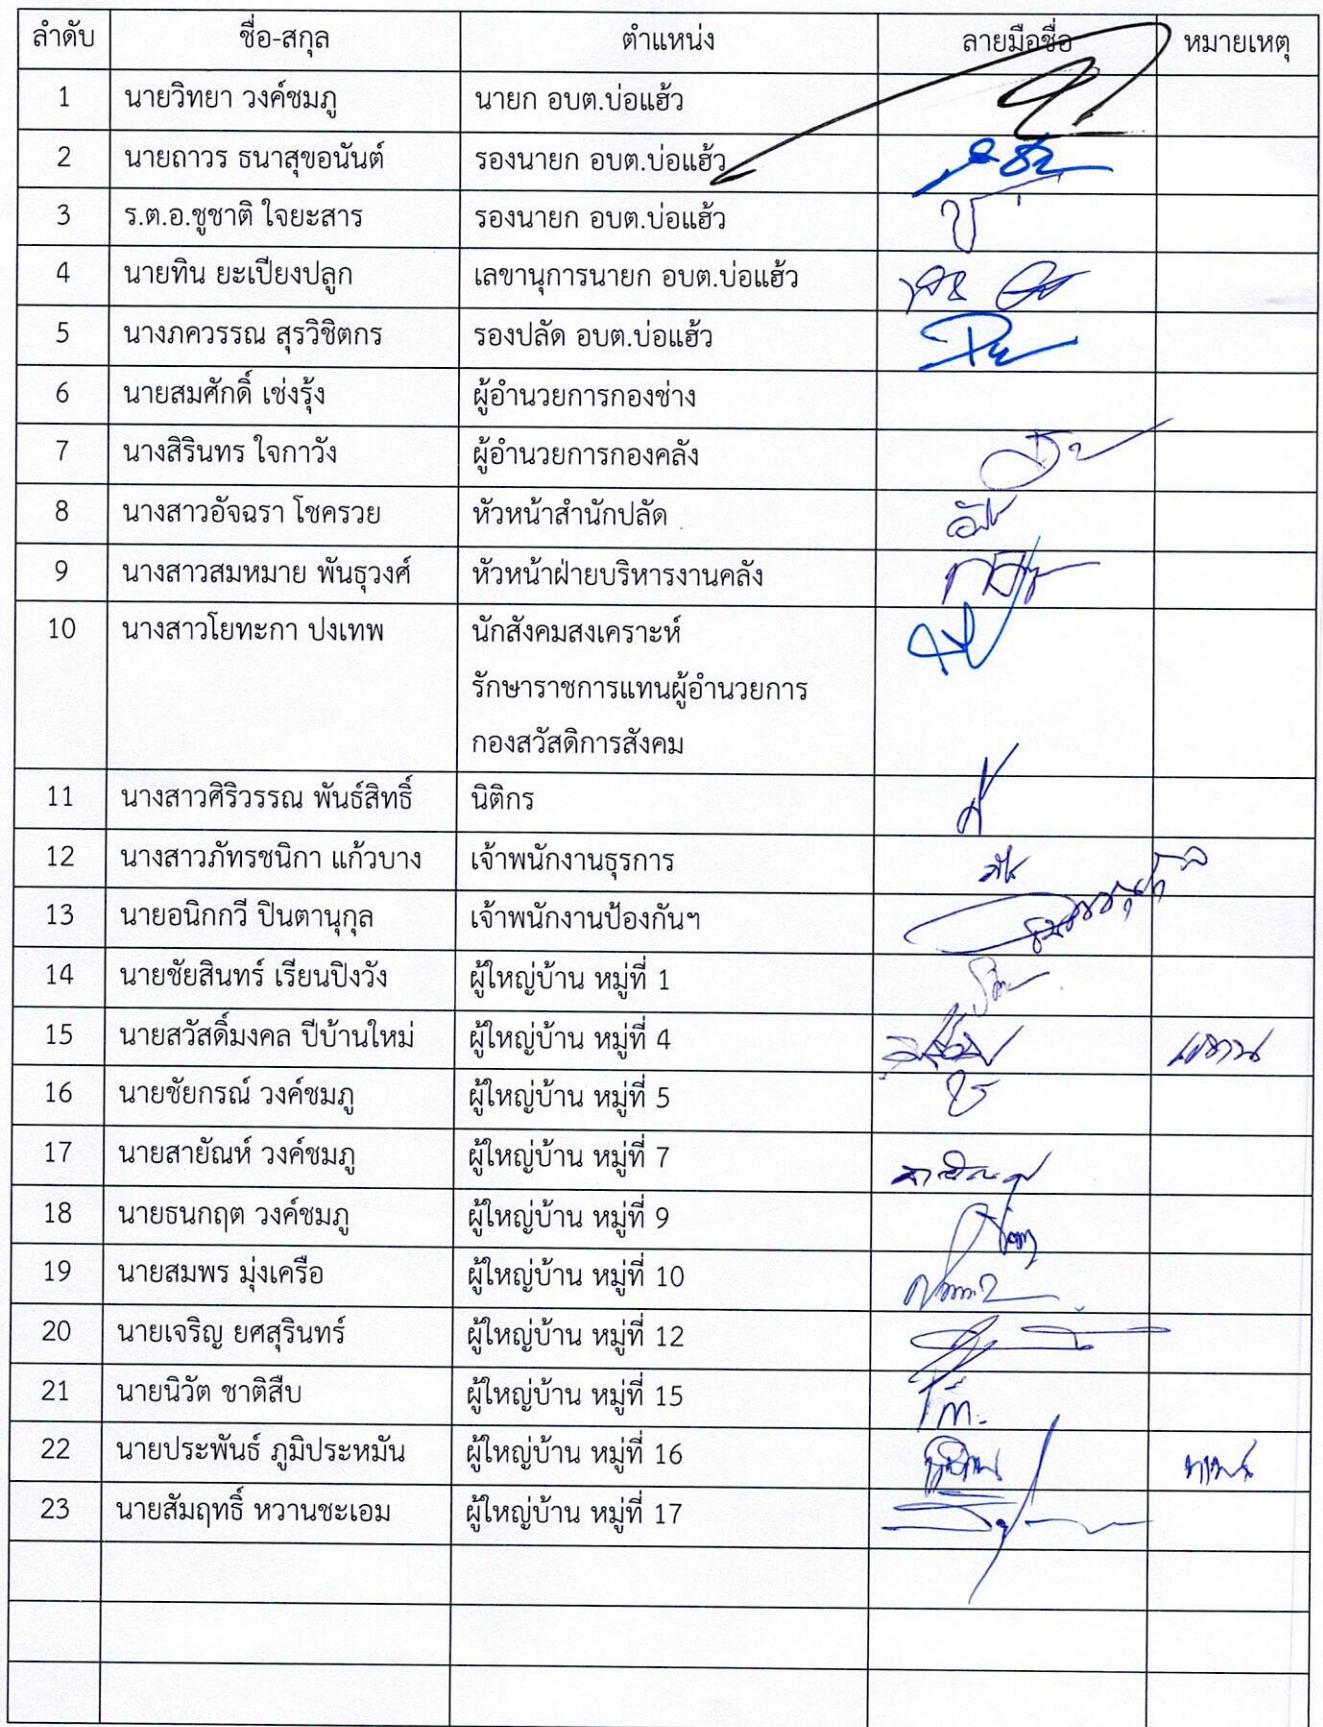 ลำดับ ชื่อ-สกุล ตำแหน่ง ลายมือชื่อ หมายเหตุ
1 นายวิทยา วงค์ชมภู นายก อบต.บ่อแฮ้ว
2 นายถาวร ธนาสุขอนันต์ รองนายก อบต.บ่อแฮ้ว
3 ร.ต.อ.ชูชาติ ใจยะสาร รองนายก อบต.บ่อแฮ้ว
4 นายทิน ยะเปียงปลูก เลขานุการนายก อบต.บ่อแฮ้ว
5 นางภควรรณ สุรวิชิตกร รองปลัด อบต.บ่อแฮ้ว
6 นายสมศักดิ์ เช่งรุ้ง ผู้อำนวยการกองช่าง
7 นางสิรินทร ใจกาวัง ผู้อำนวยการกองคลัง
8 นางสาวอัจฉรา โชครวย หัวหน้าสำนักปลัด
9 นางสาวสมหมาย พันธุวงศ์ หัวหน้าฝ่ายบริหารงานคลัง
10 นางสาวโยทะกา ปงเทพ นักสังคมสงเคราะห์
รักษาราชการแทนผู้อำนวยการ
กองสวัสดิการสังคม
11 นางสาวศิริวรรณ พันธ์สิทธิ์ นิติกร
12 นางสาวภัทรชนิกา แก้วบาง เจ้าพนักงานธุรการ
13 นายอนิกกวี ปินตานุกุล เจ้าพนักงานป้องกันฯ
14 นายชัยสินทร์ เรียนปิงวัง ผู้ใหญ่บ้าน หมู่ที่ 1
15 นายสวัสดิ์มงคล ปีบ้านใหม่ ผู้ใหญ่บ้าน หมู่ที่ 4
16 นายชัยกรณ์ วงค์ชมภู ผู้ใหญ่บ้าน หมู่ที่ 5
17 นายสายัณห์ วงค์ชมภู ผู้ใหญ่บ้าน หมู่ที่ 7
18 นายธนกฤต วงค์ชมภู ผู้ใหญ่บ้าน หมู่ที่ 9
19 นายสมพร มุ่งเครือ ผู้ใหญ่บ้าน หมู่ที่ 10
20 นายเจริญ ยศสุรินทร์ ผู้ใหญ่บ้าน หมู่ที่ 12
21 นายนิวัต ชาติสืบ ผู้ใหญ่บ้าน หมู่ที่ 15
22 นายประพันธ์ ภูมิประหมัน ผู้ใหญ่บ้าน หมู่ที่ 16
23 นายสัมฤทธิ์ หวานชะเอม ผู้ใหญ่บ้าน หมู่ที่ 17